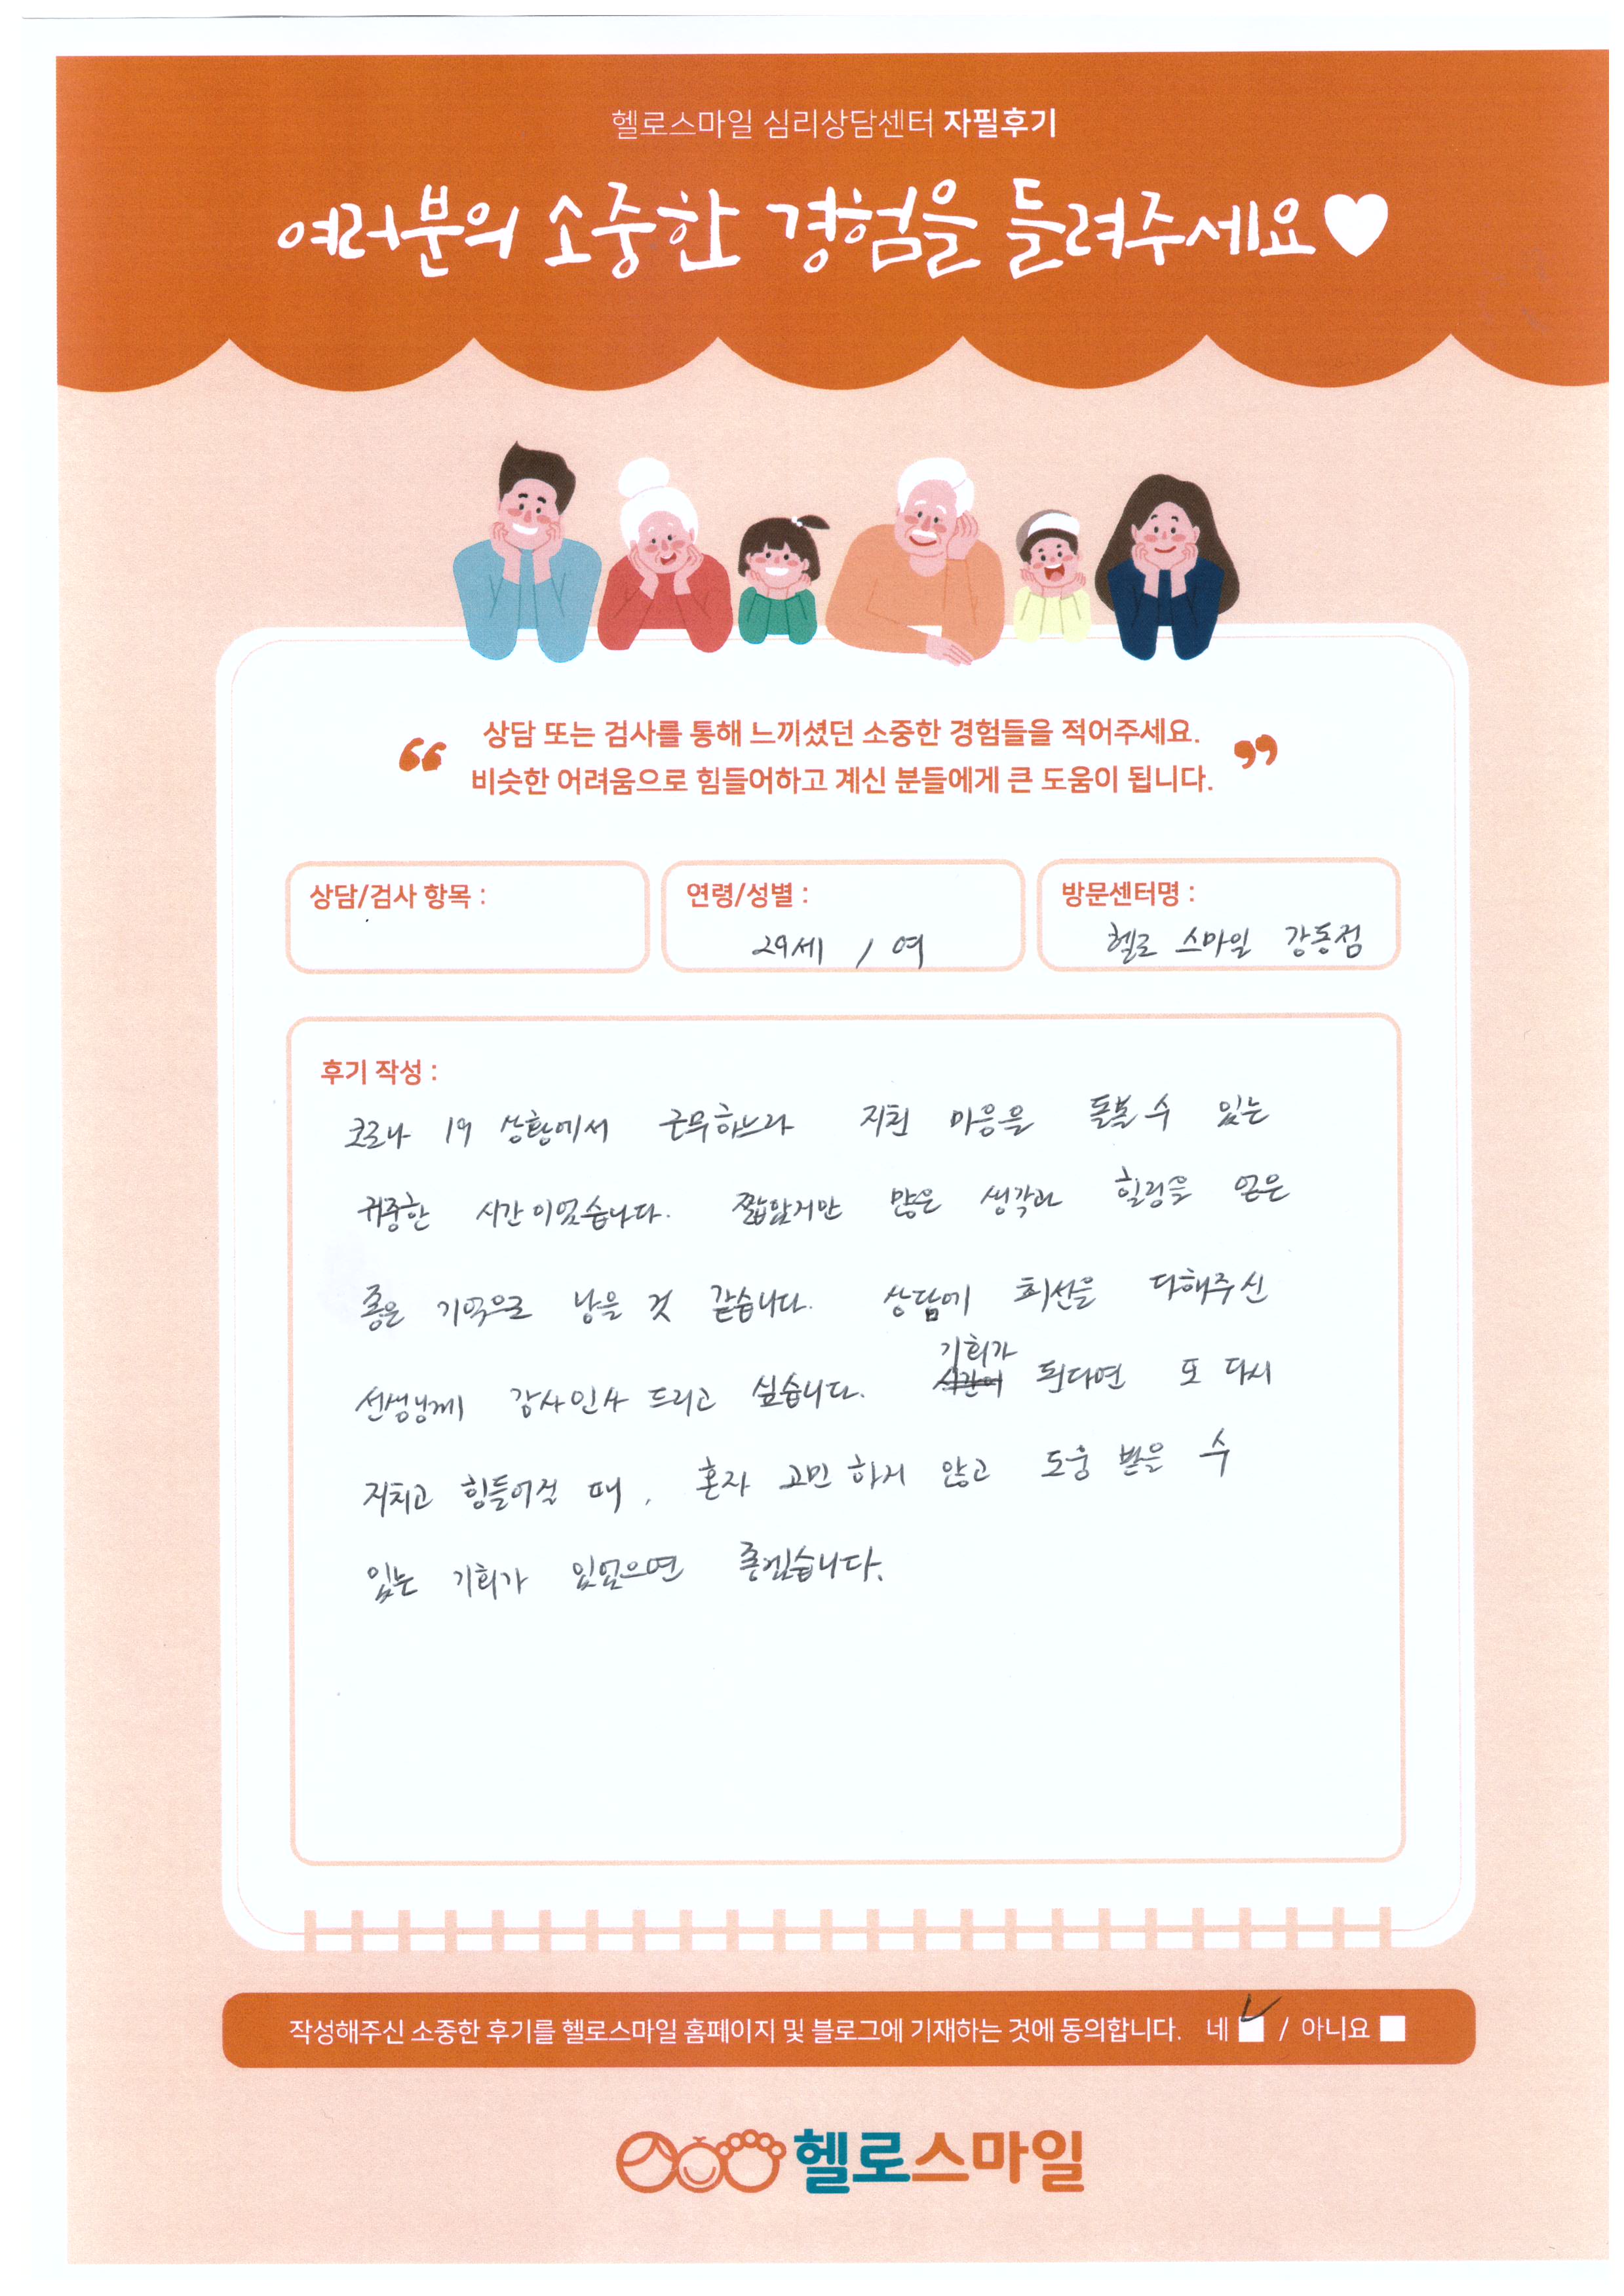 헬로스마일 심리상담센터 자필후기
여러분의 소중한 경험을 들려주세요
상담 또는 검사를 통해 느끼셨던 소중한 경험들을 적어주세요.
비슷한 어려움으로 힘들어하고 계신 분들에게 큰 도움이 됩니다.
상담/검사 항목 :
연령/성별 :
29세 / 여
방문센터명 :
헬로 스마일 강동점
후기 작성 :
코로나 19 상황에서 근무하느라 지친 마음을 돌볼 수 있는
귀중한 시간이었습니다. 짧았지만 많은 생각과 힐링을 얻은
좋은 기억으로 남을 것 같습니다. 상담에 최선을 다해주신
선생님께 감사인사 드리고 싶습니다. 기회가 된다면 또 다시
지치고 힘들어질 때, 혼자 고민 하지 않고 도움 받을 수
있는 기회가 있었으면 좋겠습니다.
작성해주신 소중한 후기를 헬로스마일 홈페이지 및 블로그에 기재하는 것에 동의합니다. 네 / 아니요
헬로스마일